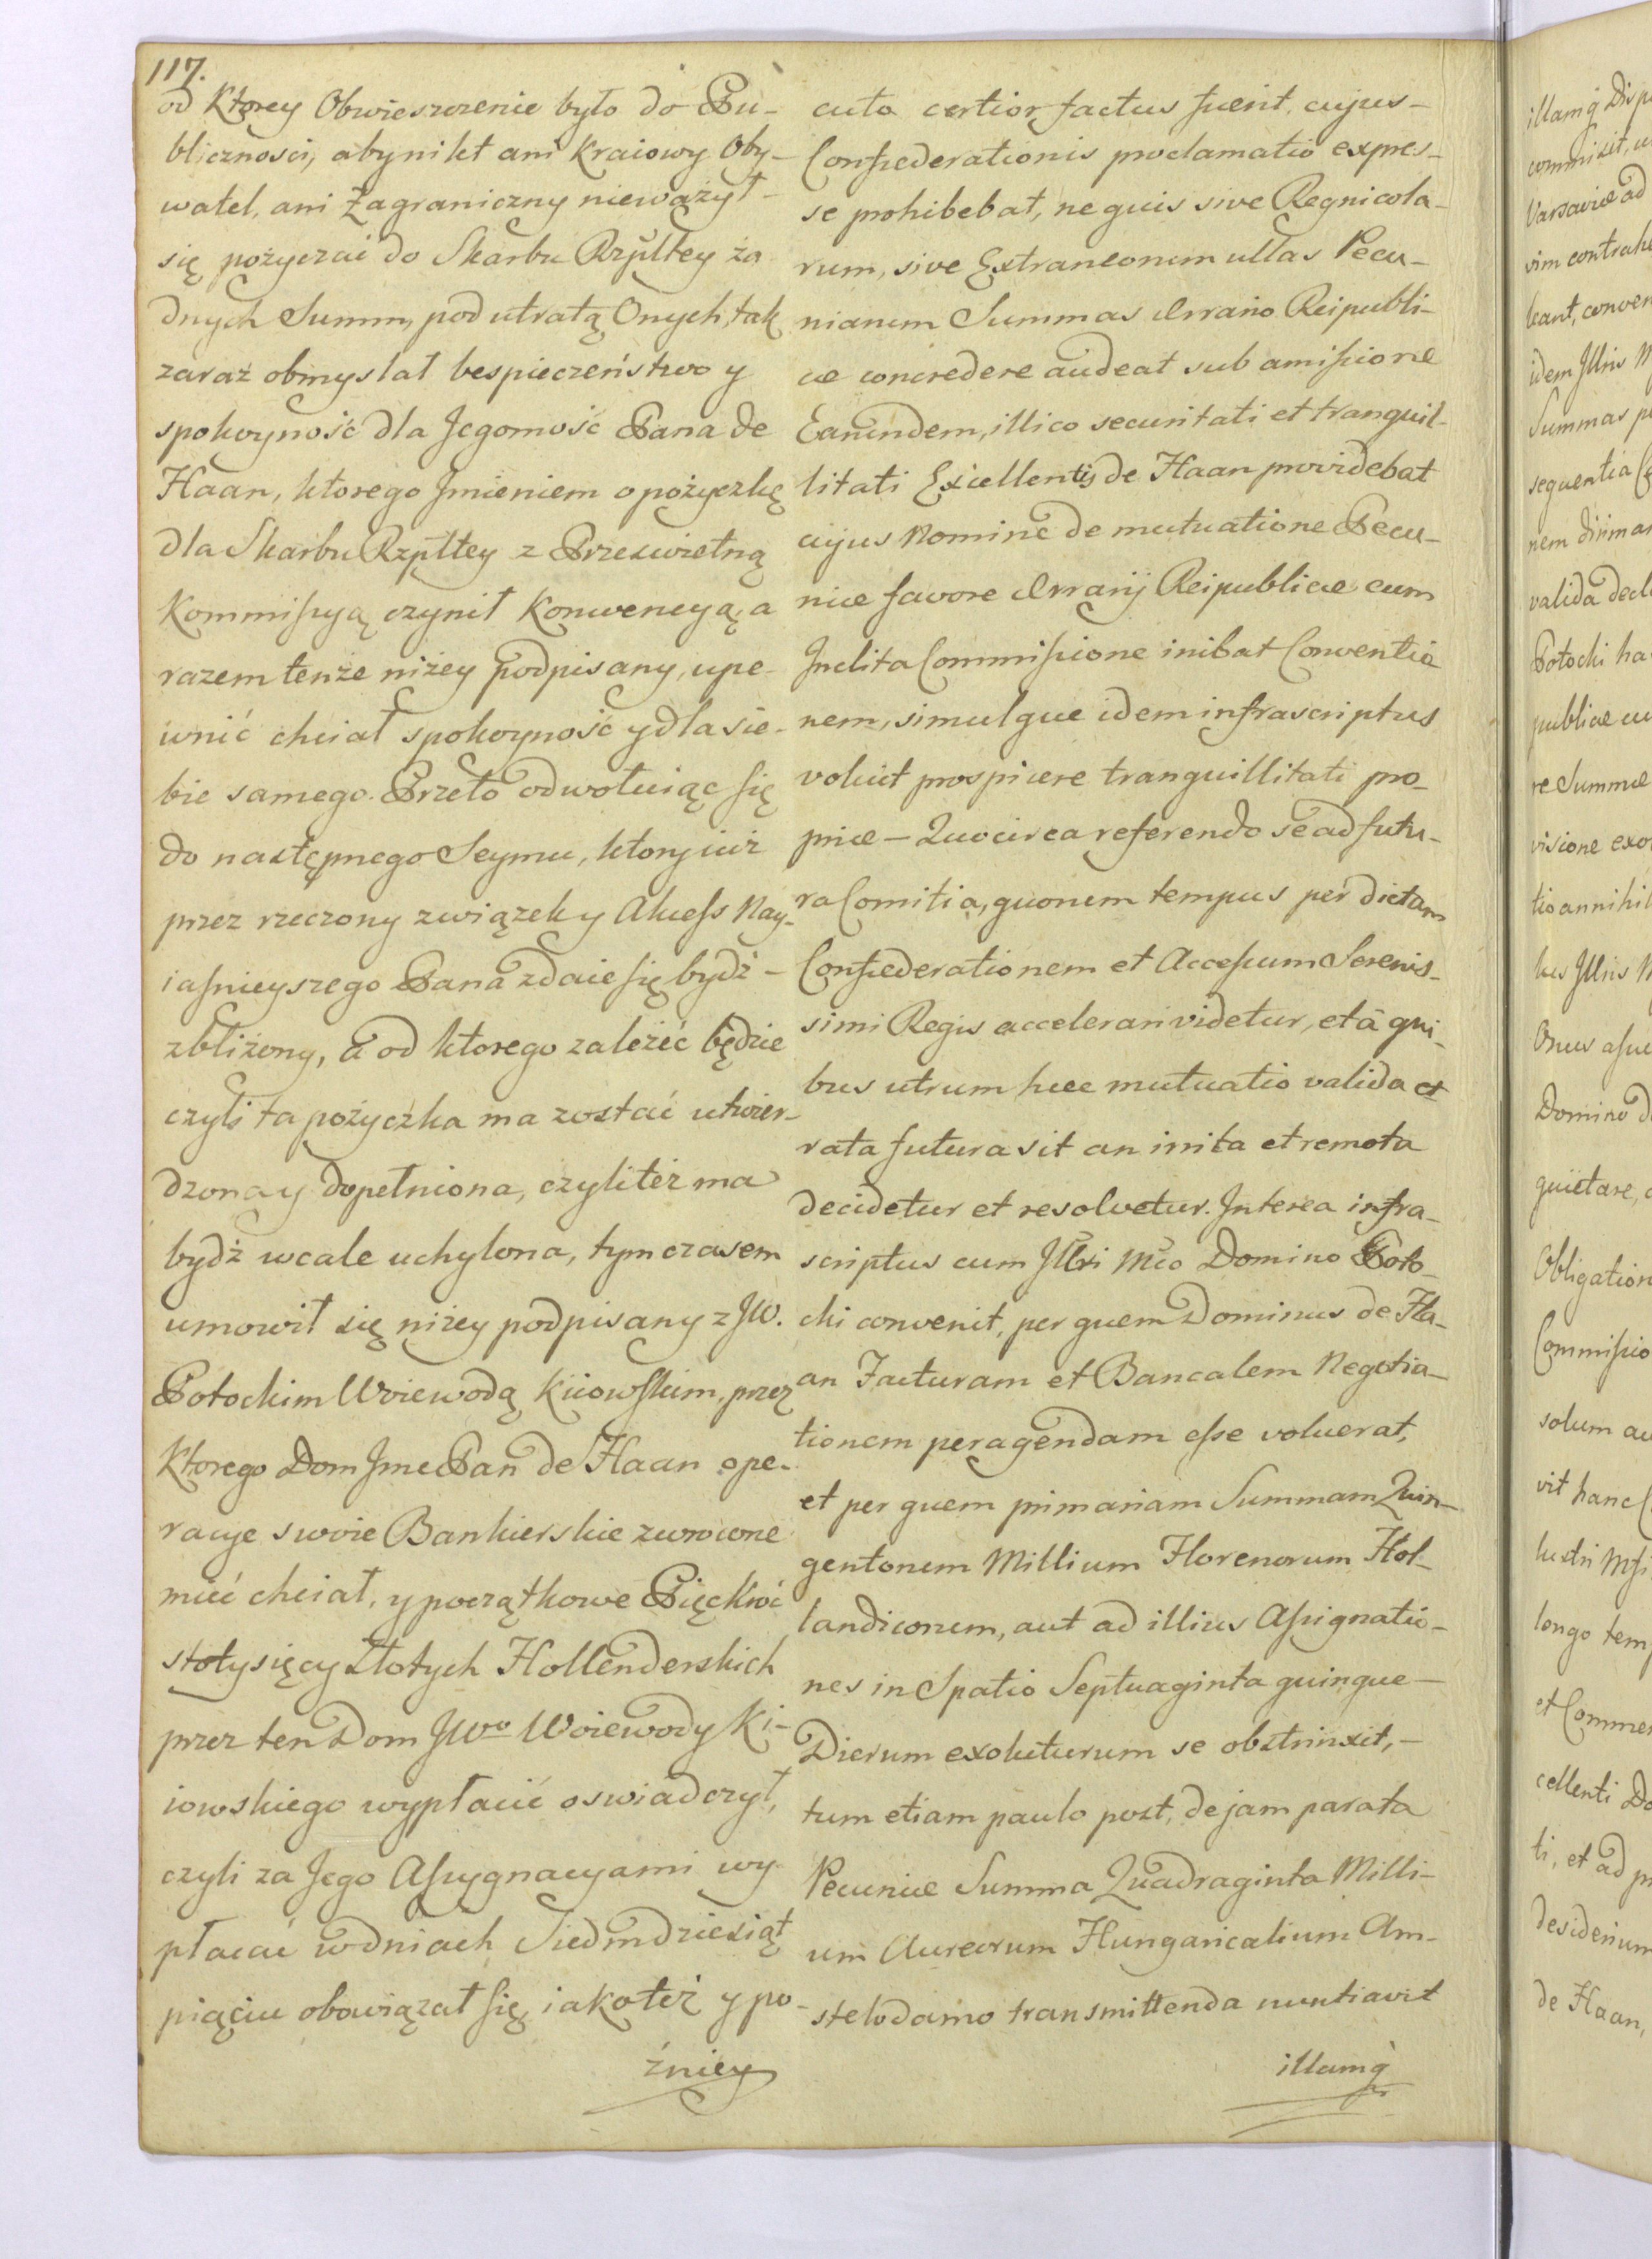 117.
od Ktorey Obwieszczenie było do Pu-
bliczności, aby nikt ani Kraiowy Oby-
watel, ani Zagraniczny nieważył-
się pożyczać do Skarbu Rzpltey ża
dnych Summ, pod utratą Onych, tak
zaraz obmyslał bespieczeństwo y
spokoyność dla Jegomość Pana de
Haan, ktorego Jmieniem o pożyczkę
dla Skarbu Rzpltey z Prześwietną
Kommissyą czynił Konwencyą, a
razem tenże niżey podpisany, upe-
wnić chciał spokoyność y dla sie-
bie samego. Przeto odwołuiąc się
do następnego Seymu, ktory iuż
przez rzeczony związek y Akcess Nay-
iaśnieyszego Pana zdaie się bydź-
zbliżony, a od ktorego zależeć będzie
czyli ta pożyczka ma zostać utwier-
dzona y dopełniona, czyli też ma
bydź wcale uchylona, tymczasem
umowił się niżey podpisany z JW.
Potockim Woiewodą Kiiowskim, przez
Ktorego Dom Jme Pan de Haan ope-
racye swoie Bankierskie zwrocone
mieć chciał, y początkowe Pięćkroć
sto tysięcy Złotych Hollenderskich
przez ten Dom JWo Woiewody Ki-
iowskiego wypłacić oswiadczył,
czyli za Jego Assygnacyami wy
płacać w dniach Siedmdziesiąt
piąciu obowiązał się, iakoteż y po-
źniey
cuto certior factus fuerit, cujus-
Confœderationis proclamatio expres-
se prohibebat, ne quis sive Regnicola-
rum, sive Extraneorum ullas Pecu-
niarum Summas Ærario Reipubli-
cæ concredere audeat sub amissione
Earundem, illico securitati et tranquil-
litati Excellentis de Haan providebat
cujus Nomine de mutuatione Pecu-
niæ favore Ærarij Reipublicæ cum
Inclita Commissione inibat Conventio
nem, simulque idem infrascriptus
voluit prospicere tranquillitati pro-
priæ - Quocirca referendo se ad futu-
ra Comitia, quorum tempus per dictam
Confœderationem et Accessum Serenis-
simi Regis accelerari videtur, et à qui-
bus utrum hæc mutuatio valida et
rata futura sit an irrita et remota
decidetur et resolvetur. Interea infra-
scriptus cum Jllri Mco Domino Poto-
cki convenit, per quem Dominus de Ha-
an Facturam et Bancalem Negotia-
tionem peragendam esse voluerat,
et per quem primariam Summam Quin-
gentorum Millium Florenorum Hol-
landicorum, aut ad illius Assignatio-
nes in Spatio Septuaginta quinque-
Dierum exoluturum se obstrinxit,-
tum etiam paulo post, de jam parata
Pecuniæ Summa Quadraginta Milli-
um Aureorum Hungaricalium Am-
stelodamo transmittenda nuntiavit
illamq̀
illamq̀ Disp
commisit, u
Varsaviæ ad
vim contrahe
beant, conven
idem Jllris M
Summas p
sequentia C
nem dirimar
valida decl
Potocki ha
publicæ cu
re Summæ
visione exo
tio annihil
Onus
Domino d
quietare,
Obligation
Commissio
solum au
vit hanc
longo tem
et Commen
cellenti Do
ti, et ad p
desiderium
de Haan,